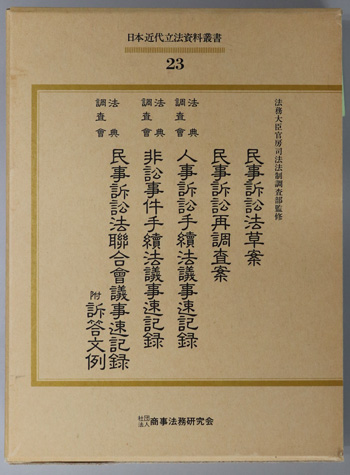 日本近代立法資料叢書
23
法務大臣官房司法法制調査部監修
民事訴訟法草案
民事訴訟再調査案
法典調査會 人事訴訟手續法議事速記録
法典調査會 非訟事件手續法議事速記録
法典調査會 民事訴訟法聯合會議事速記録
附 訴答文例
社団法人 商事法務研究会